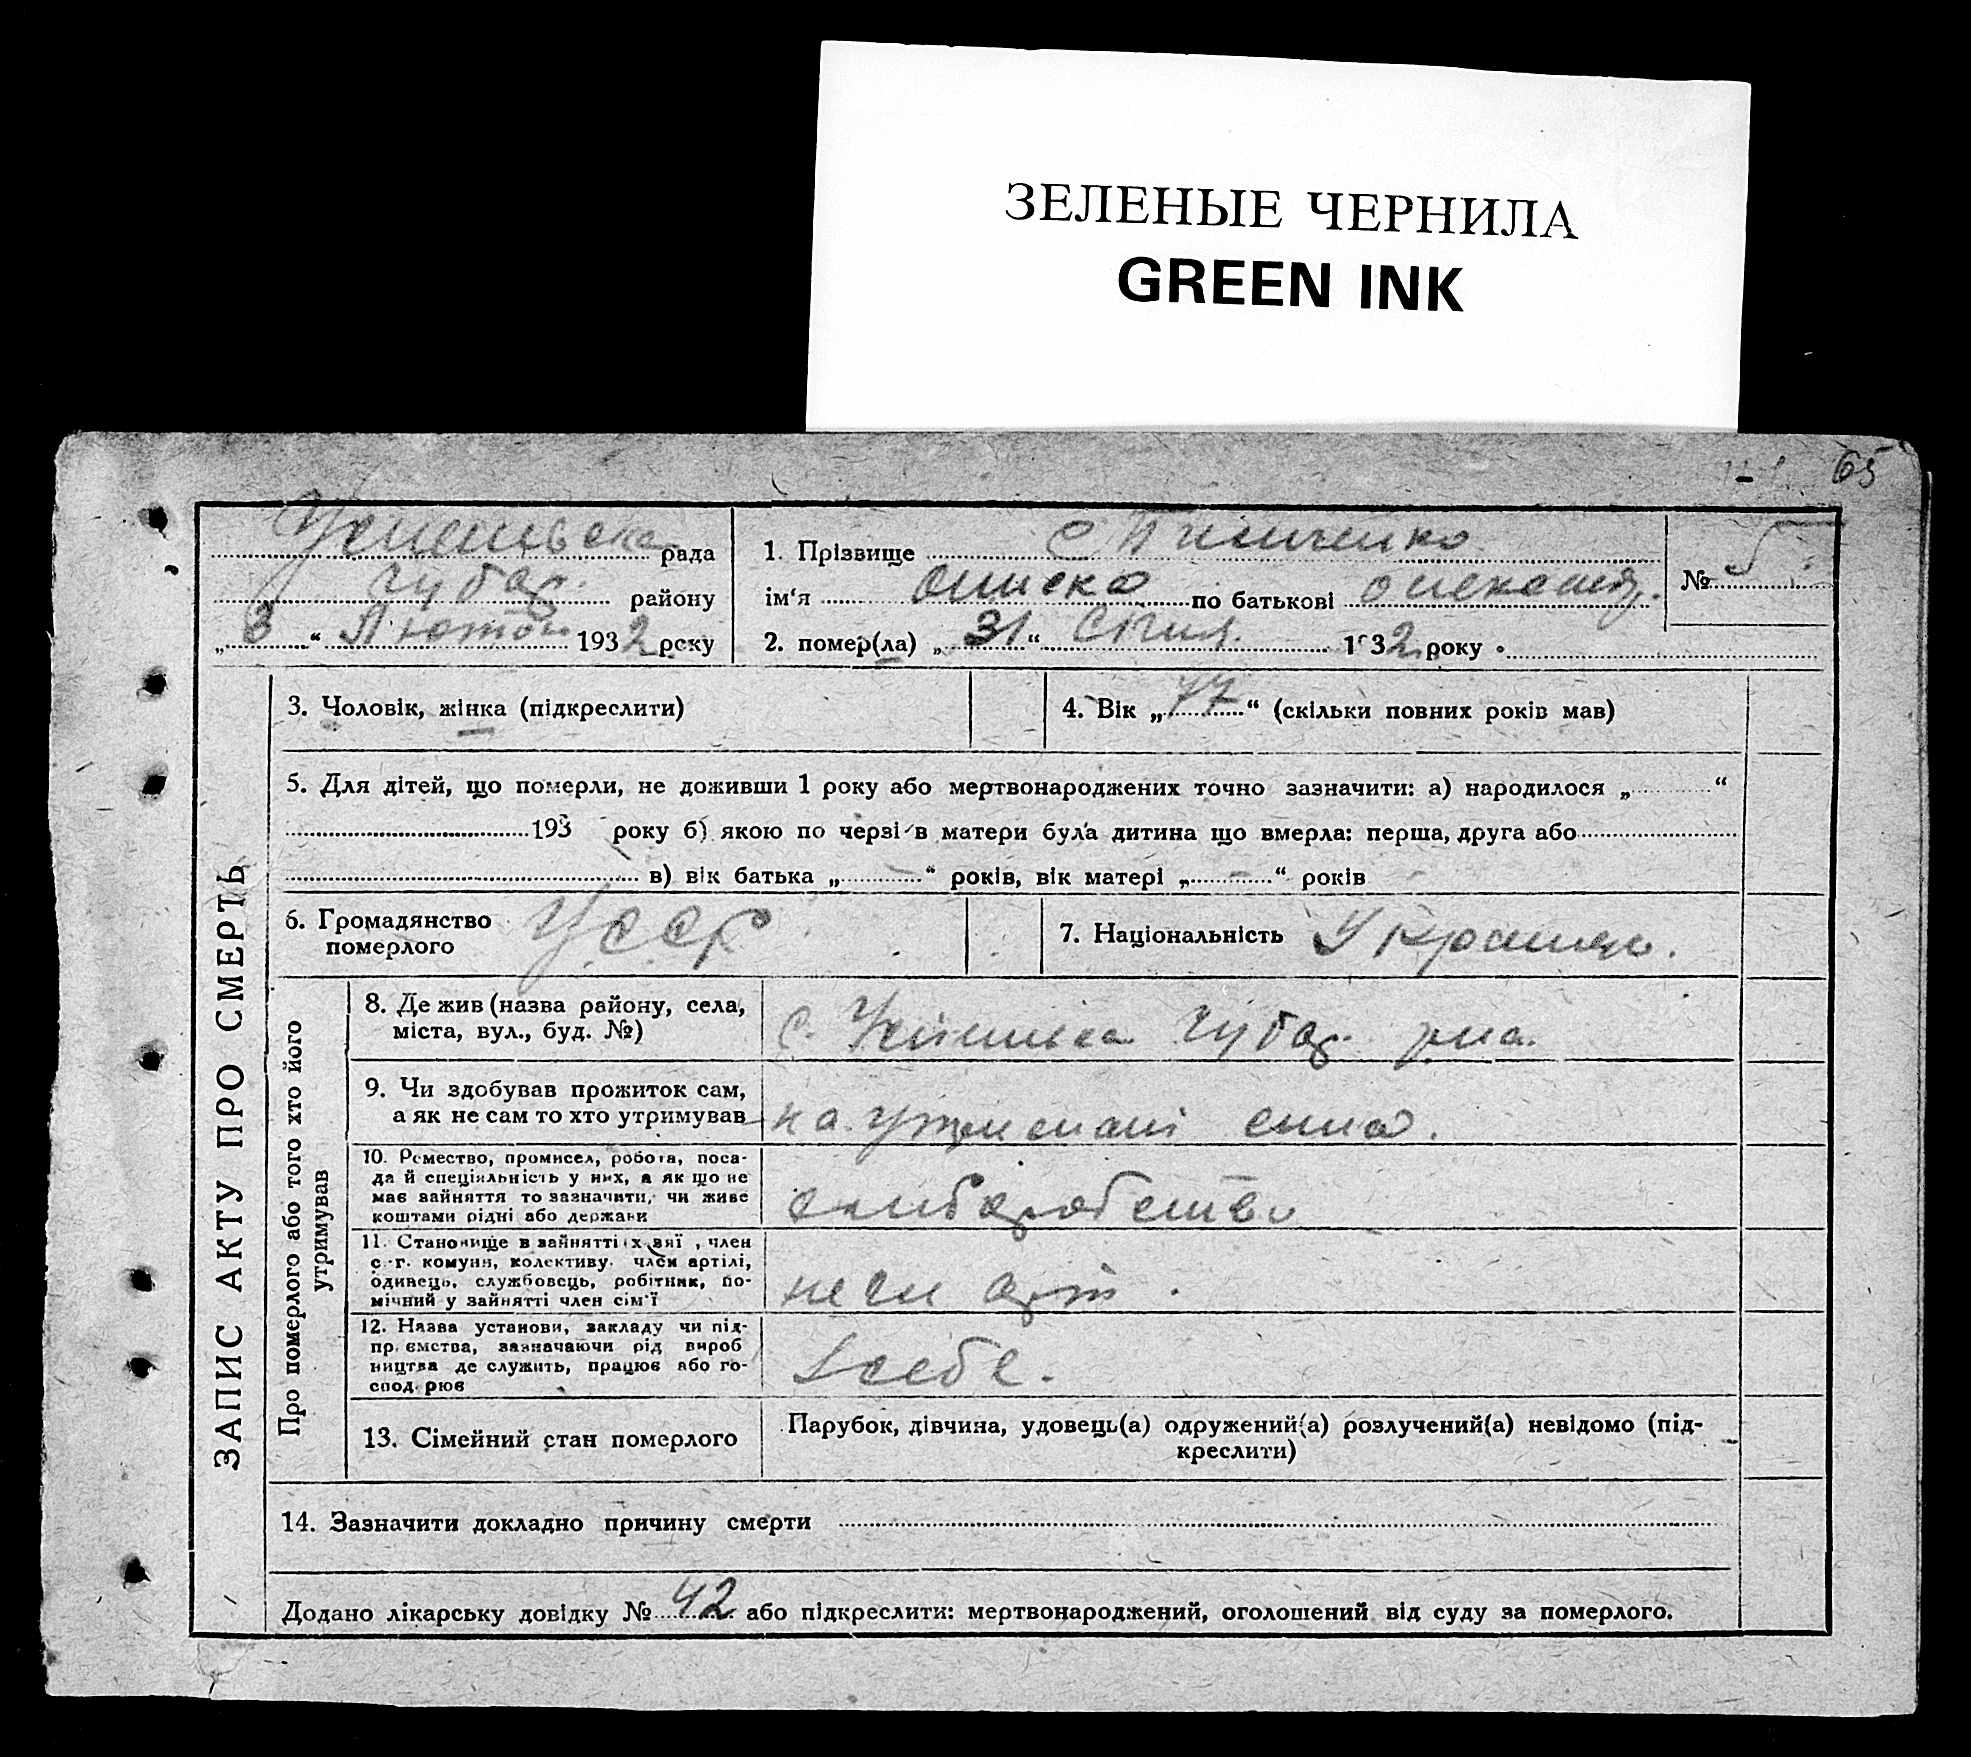 ЗЕЛЕНЫЕ ЧЕРНИЛА
GREEN INK
65
рада
району
„ 3 “ Лютой 1932 року
1. Прізвище
№ 5
ім‘я по батькові
2. помер(ла) „ 31 “ Січня. 1932 року
ЗАПИС АКТУ ПРО СМЕРТЬ
3. Чоловік, жінка (підкреслити)
4. Вік „ 77 “ (скільки повних років мав)
5. Для дітей, що померли, не доживши 1 року або мертвонароджених точно зазначити: а) народилося „ “
193 року б) якою по черзі в матери була дитина що вмерла: перша, друга або
в) вік батька „ – “ років, вік матері „ – “ років
6. Громадянство
померлого
УССР
7. Національність
Про померлого або того хто його
утримував
8. Де жив (назва району, села,
міста, вул., буд. №)
с. Чубар. р-на.
9. Чи здобував прожиток сам,
а як не сам то хто утримував
на утримані сина.
10. Ремество, промисел, робота, поса-
да й спеціяльність у них, а як що не
має зайняття то зазначити, чи живе
коштами рідні або держави
хліборобство
11. Становище в зайнятті х зяї , член
с.-г. комуни, колективу, член артілі,
одинець, службовець, робітник, по-
мічний у зайнятті член сім‘ї
арт.
12. Назва установи, закладу чи під-
пр. ємства, зазначаючи рід вироб
ництва де служить, працює або го-
спод. рює
13. Сімейний стан померлого
Парубок, дівчина, удовець(а) одружений(а) розлучений(а) невідомо (під-
креслити)
14. Зазначити докладно причину смерти
Додано лікарську довідку № 42 або підкреслити: мертвонароджений, оголошений від суду за померлого.